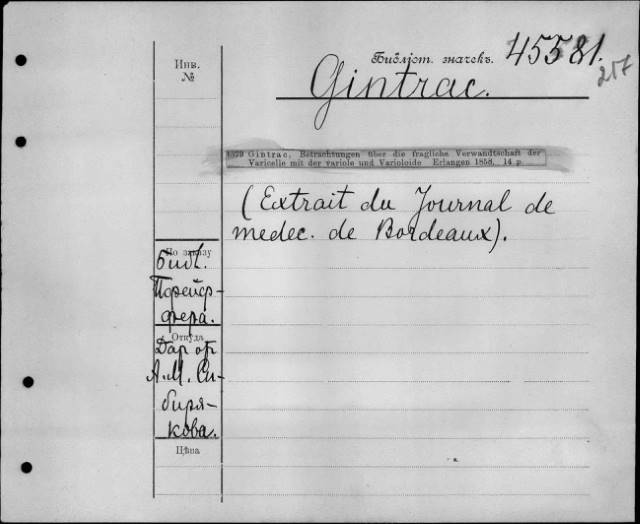 Инв.
№
Библіот. значекъ.
45581.
217
Gintrac.
1379 Gintrac, Betrachtungen über die fragliche Verwandtschaft der
Varicelle mit der variole und Varioloide Erlangen 1858, 14 p.
(Extrait du Journal de
medec. de Bordeaux).
По заказу
Библ.
Пфейф-
фера.
Откуда
Дар от
А.М. Си-
биря-
кова.
Цѣна